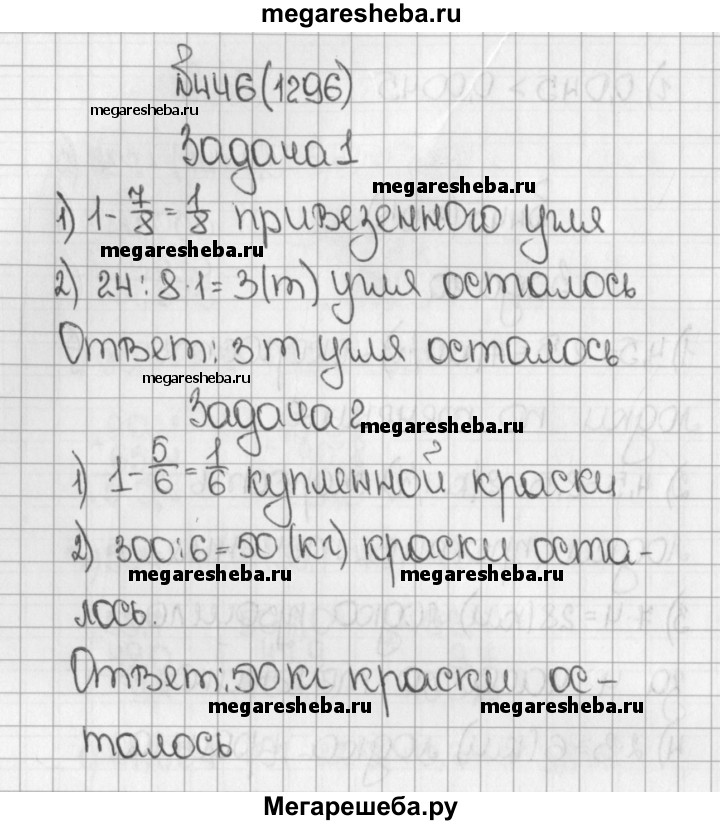 megaresheba.ru
№446(1296)
megaresheba.ru
Задача 1
megaresheba.ru
1) 1-7/8=1/8 привезенного угля
megaresheba.ru
2) 24:8·1=3(т) угля осталось
Ответ: 3 т угля осталось
megaresheba.ru
Задача 2
megaresheba.ru
1) 1-5/6=1/6 купленной краски
2) 300:6=50(кг) краски оста-
megaresheba.ru megaresheba.ru
лось.
Ответ: 50 кг краски ос-
megaresheba.ru megaresheba.ru
талось
Мегарешеба.ру